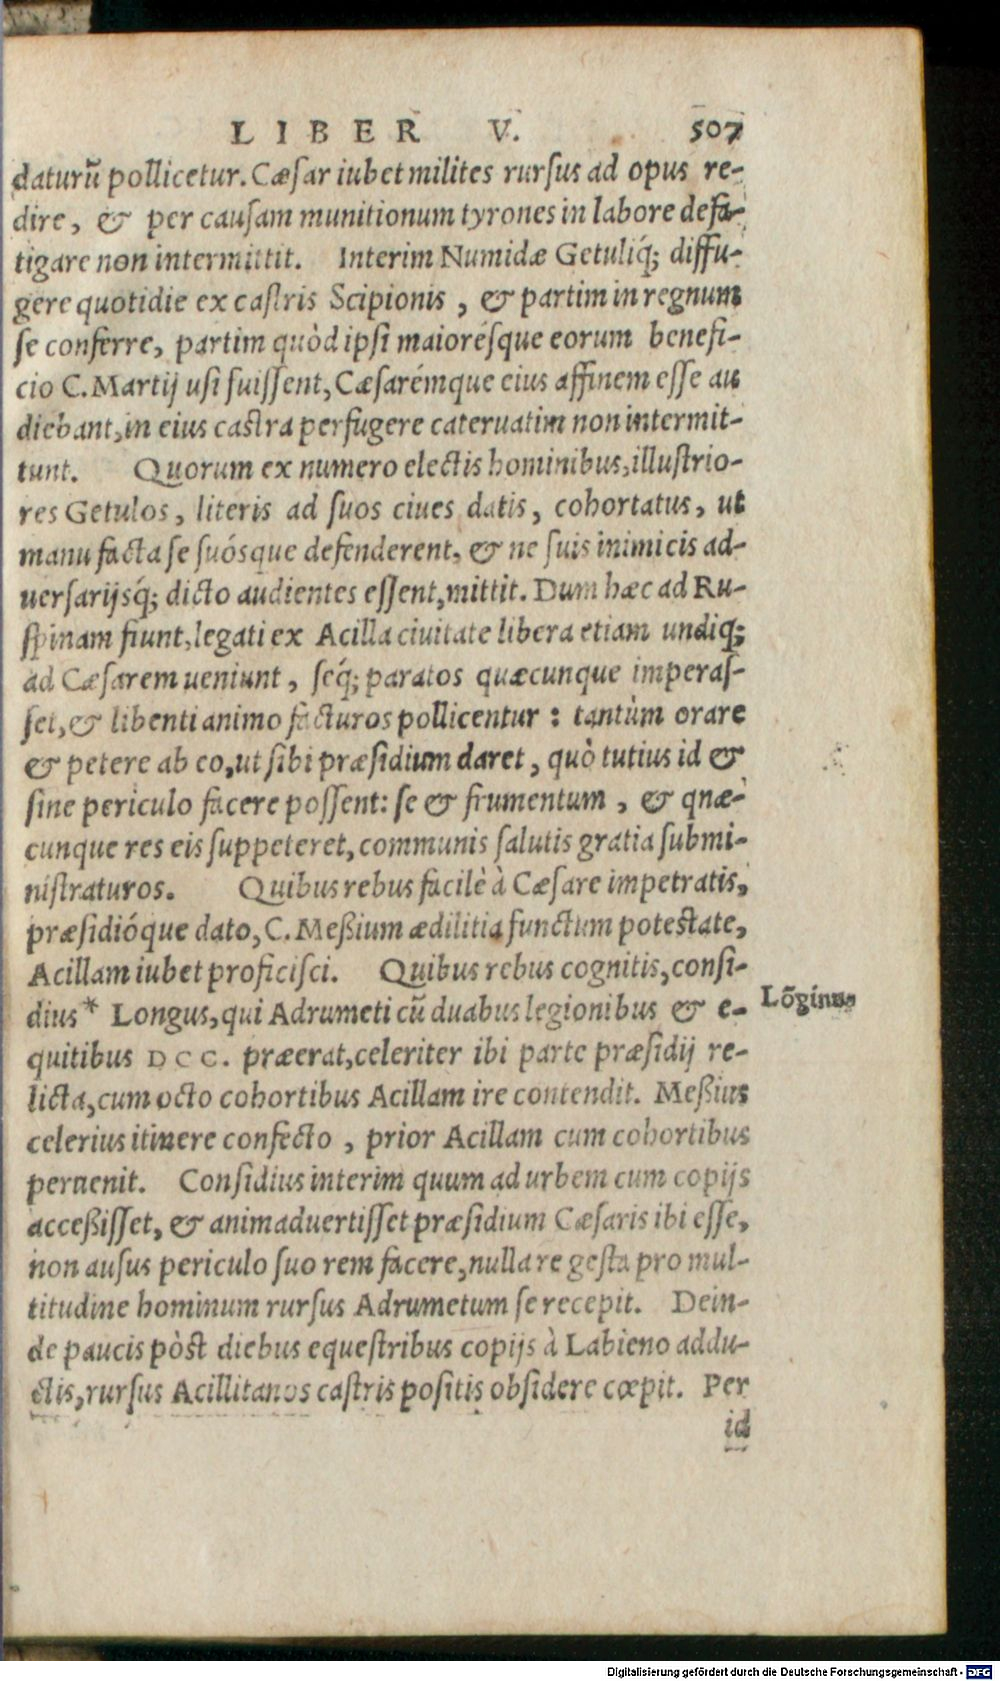 LIBER V. 507
daturũ pollicetur. Cæsar iubet milites rursus ad opus re-
dire, & per causam munitionum tyrones in labore defa-
tigare non intermittit. Interim Numidæ Getuliq́; diffu-
gere quotidie ex castris Scipionis, & partim in regnum
se conferre, partim quòd ipsi maiorésque eorum benefi-
cio C. Martij usi fuissent, Cæsarémque eius affinem esse au
diebant, in eius castra perfugere cateruatim non intermit-
tunt. Quorum ex numero electis hominibus, illustrio-
res Getulos, literis ad suos ciues datis, cohortatus, ut
manu facta se suósque defenderent, & ne suis inimicis ad-
uersarijsq́; dicto audientes essent, mittit. Dum hæc ad Ru-
spinam fiunt, legati ex Acilla ciuitate libera etiam undiq;
ad Cæsarem ueniunt, seq́; paratos quæcunque imperas-
set, & libenti animo facturos pollicentur : tantùm orare
& petere ab eo, ut sibi præsidium daret, quò tutius id &
sine periculo facere possent: se & frumentum, & qnæ-
cunque res eis suppeteret, communis salutis gratia submi-
nistraturos. Quibus rebus facilè à Cæsare impetratis,
præsidióque dato, C. Meßium ædilitia functum potestate,
Acillam iubet proficisci. Quibus rebus cognitis, consi-
dius* Longus, qui Adrumeti cũ duabus legionibus & e-
Lõginus
quitibus DCC. præerat, celeriter ibi parte præsidij re-
licta, cum octo cohortibus Acillam ire contendit. Meßius
celerius itinere confecto, prior Acillam cum cohortibus
peruenit. Considius interim quum ad urbem cum copijs
acceßisset, & animaduertisset præsidium Cæsaris ibi esse,
non ausus periculo suo rem facere, nulla re gesta pro mul-
titudine hominum rursus Adrumetum se recepit. Dein-
de paucis pòst diebus equestribus copijs à Labieno addu-
ctis, rursus Acillitanos castris positis obsidere cœpit. Per
id
Digitalisierung gefördert durch die Deutsche Forschungsgemeinschaft - DFG